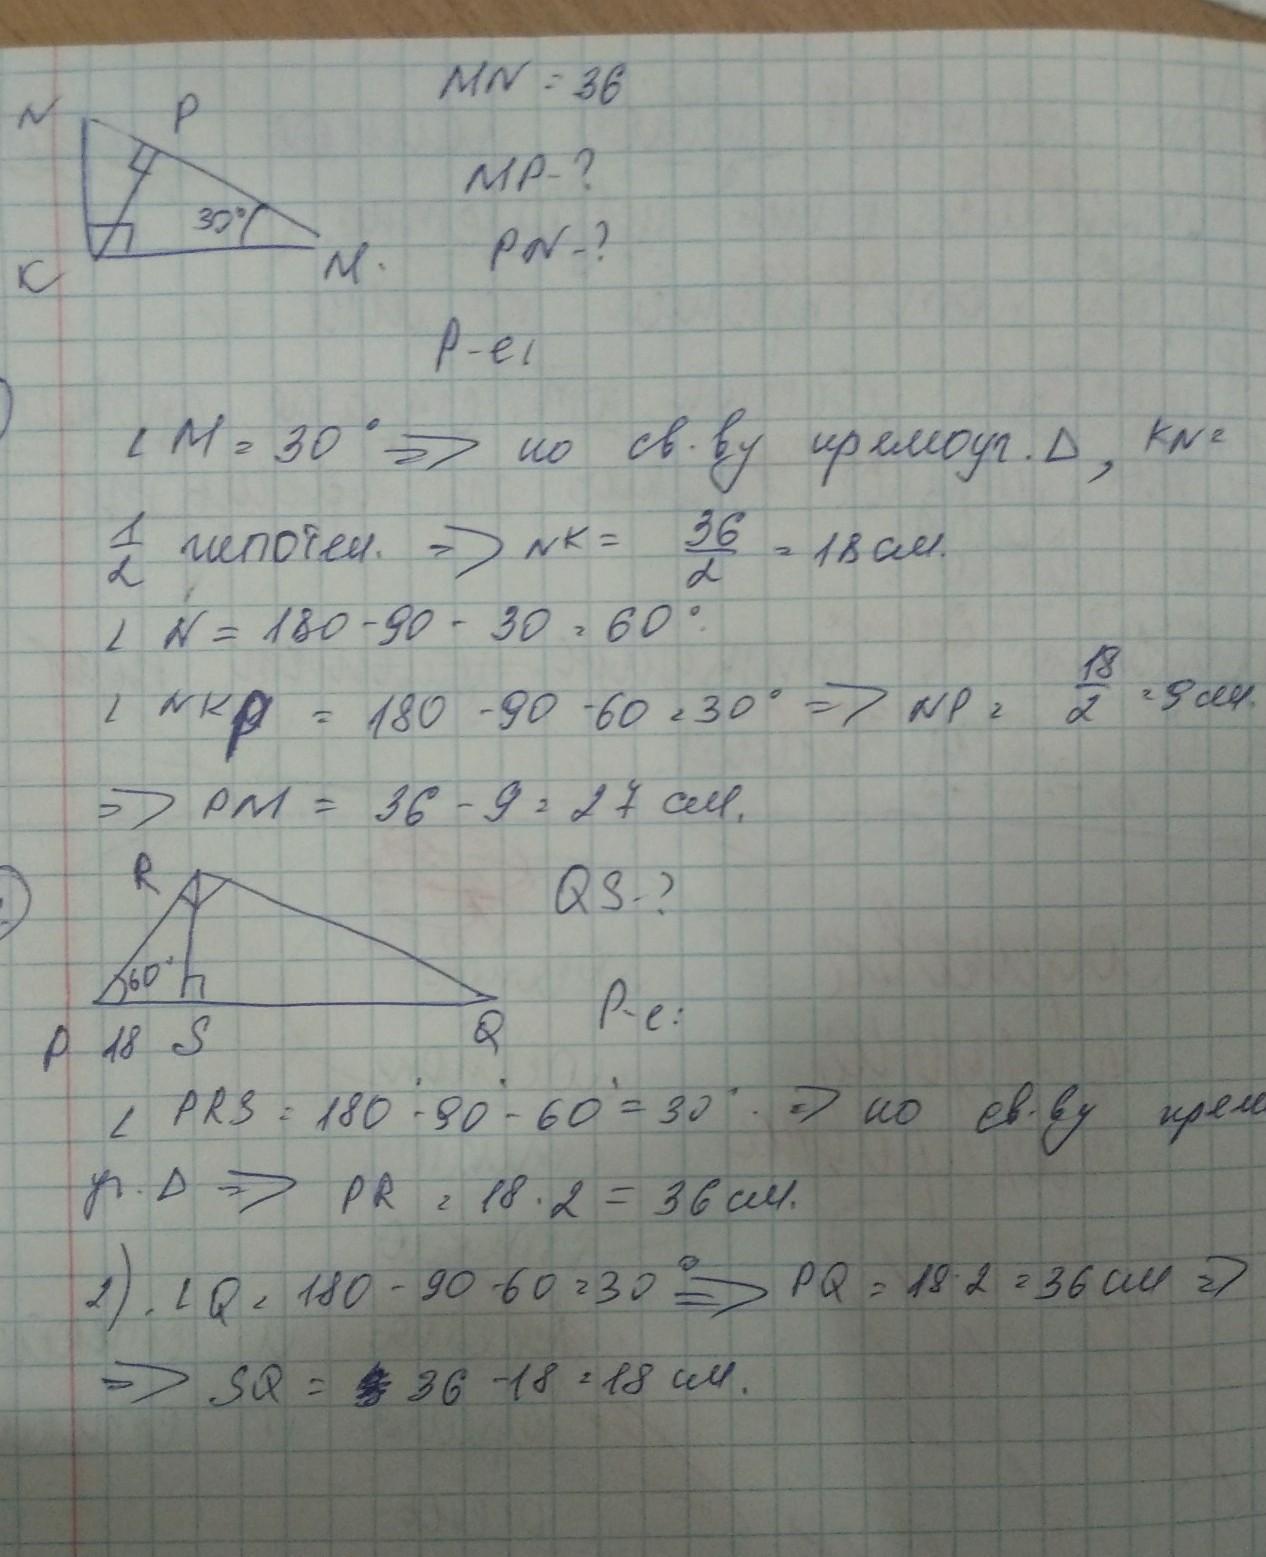 N P MN = 36
MP-?
30°
PN-?
K M.
P-e:
∠ M = 30° => по св.ву прямоуг. Δ, KN =
1/2 гипотен. => NK = 36/2 = 18 см.
∠ N = 180 - 90 - 30 = 60°.
∠ NKP = 180 - 90 - 60 = 30° => NP = 18/2 = 9 см.
=> PM = 36 - 9 = 27 см.
R QS-?
60°
P-e:
P 18 S Q
∠ PRS = 180° - 90° - 60° = 30°. => по св.ву прям
уг. Δ => PR = 18 · 2 = 36 см.
2). ∠ Q = 180 - 90 - 60 = 30° => PQ = 18·2 = 36 см =>
=> SQ = 36 - 18 = 18 см.